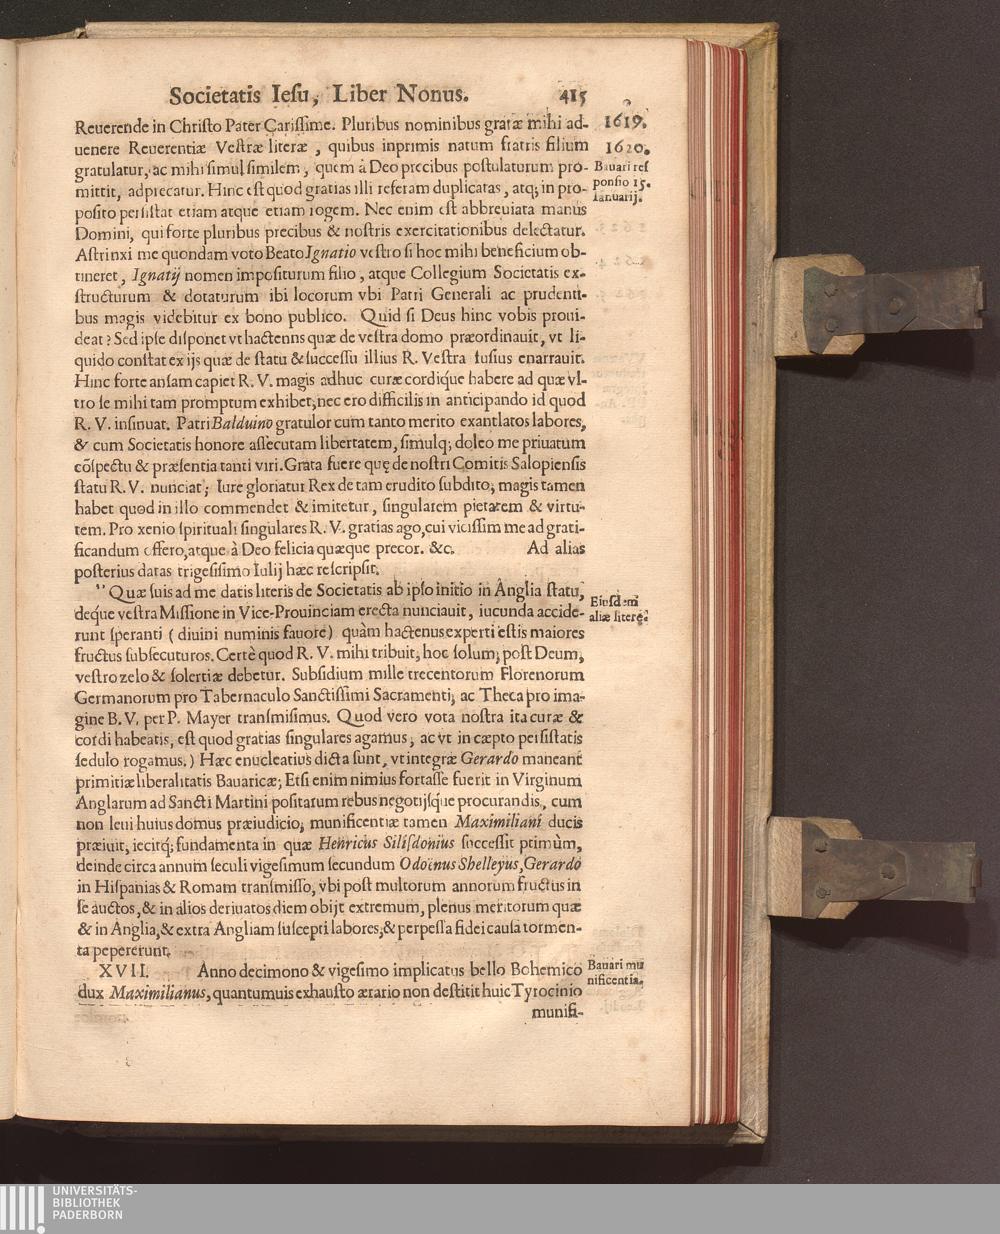 Societatis Iesu, Liber Nonus. 415
Reuerende in Christo Pater Carissime. Pluribus nominibus gratæ mihi ad-
uenere Reuerentiæ Vestræ literæ, quibus inprimis natum fratris filium
gratulatur, ac mihi simul similem, quem à Deo precibus postulaturum pro-
mittit, adprecatur. Hinc est quod gratias illi referam duplicatas, atq; in pro-
posito persistat etiam atque etiam rogem. Nec enim est abbreuiata manus
Domini, qui forte pluribus precibus & nostris exercitationibus delectatur.
Astrinxi me quondam voto Beato Ignatio vestro si hoc mihi beneficium ob-
tineret, Ignatij nomen impositurum filio, atque Collegium Societatis ex-
structurum & dotaturum ibi locorum vbi Patri Generali ac prudenti-
bus magis videbitur ex bono publico. Quid si Deus hinc vobis proui-
deat? Sed ipse disponet vt hactenns quæ de vestra domo præordinauit, vt li-
quido constat ex ijs quæ de statu & successu illius R. Vestra fusius enarrauit.
Hinc forte ansam capiet R. V. magis adhuc curæ cordique habere ad quæ vl-
tro se mihi tam promptum exhibet; nec ero difficilis in anticipando id quod
R. V. insinuat. Patri Balduino gratulor cum tanto merito exantlatos labores,
& cum Societatis honore assecutam libertatem, simulq; doleo me priuatum
cōspectu & præsentia tanti viri. Grata fuere quę de nostri Comitis Salopiensis
statu R. V. nunciat; Iure gloriatur Rex de tam erudito subdito; magis tamen
habet quod in illo commendet & imitetur, singularem pietatem & virtu-
tem. Pro xenio spirituali singulares R. V. gratias ago, cui vicissim me ad grati-
ficandum offero, atque à Deo felicia quæque precor. &c. Ad alias
posterius datas trigesisimo Iulij hæc rescripsit.
Quæ suis ad me datis literis de Societatis ab ipso initio in Anglia statu,
deque vestra Missione in Vice-Prouinciam erecta nunciauit, iucunda accide-
runt speranti (diuini numinis fauore) quàm hactenus experti estis maiores
fructus subsecuturos. Certè quod R. V. mihi tribuit, hoc solum, post Deum,
vestro zelo & solertiæ debetur. Subsidium mille trecentorum Florenorum
Germanorum pro Tabernaculo Sanctissimi Sacramenti, ac Theca pro ima-
gine B. V. per P. Mayer transmisimus. Quod vero vota nostra ita curæ &
cordi habeatis, est quod gratias singulares agamus, ac vt in cæpto persistatis
sedulo rogamus.) Hæc enucleatius dicta sunt, vt integræ Gerardo maneant
primitiæ liberalitatis Bauaricæ; Etsi enim nimius fortasse fuerit in Virginum
Anglarum ad Sancti Martini positarum rebus negotijsque procurandis, cum
non leui huius domus præiudicio, munificentiæ tamen Maximiliani ducis
præiuit, iecitq; fundamenta in quæ Henricus Silisdonius successit primùm,
deinde circa annum seculi vigesimum secundum Odoënus Shelleyus, Gerardo
in Hispanias & Romam transmisso, vbi post multorum annorum fructus in
se auctos, & in alios deriuatos diem obijt extremum, plenus meritorum quæ
& in Anglia, & extra Angliam suscepti labores, & perpessa fidei causa tormen-
ta pepererunt.
XVII. Anno decimono & vigesimo implicatus bello Bohemico
dux Maximilianus, quantumuis exhausto ærario non destitit huic Tyrocinio
munifi-
1619.
1620.
Bauari res
ponsio 15.
Ianuarij.
Eiusdem
aliæ literę.
Bauari mu
nificentia.
UNIVERSITÄTS-
BIBLIOTHEK
PADERBORN